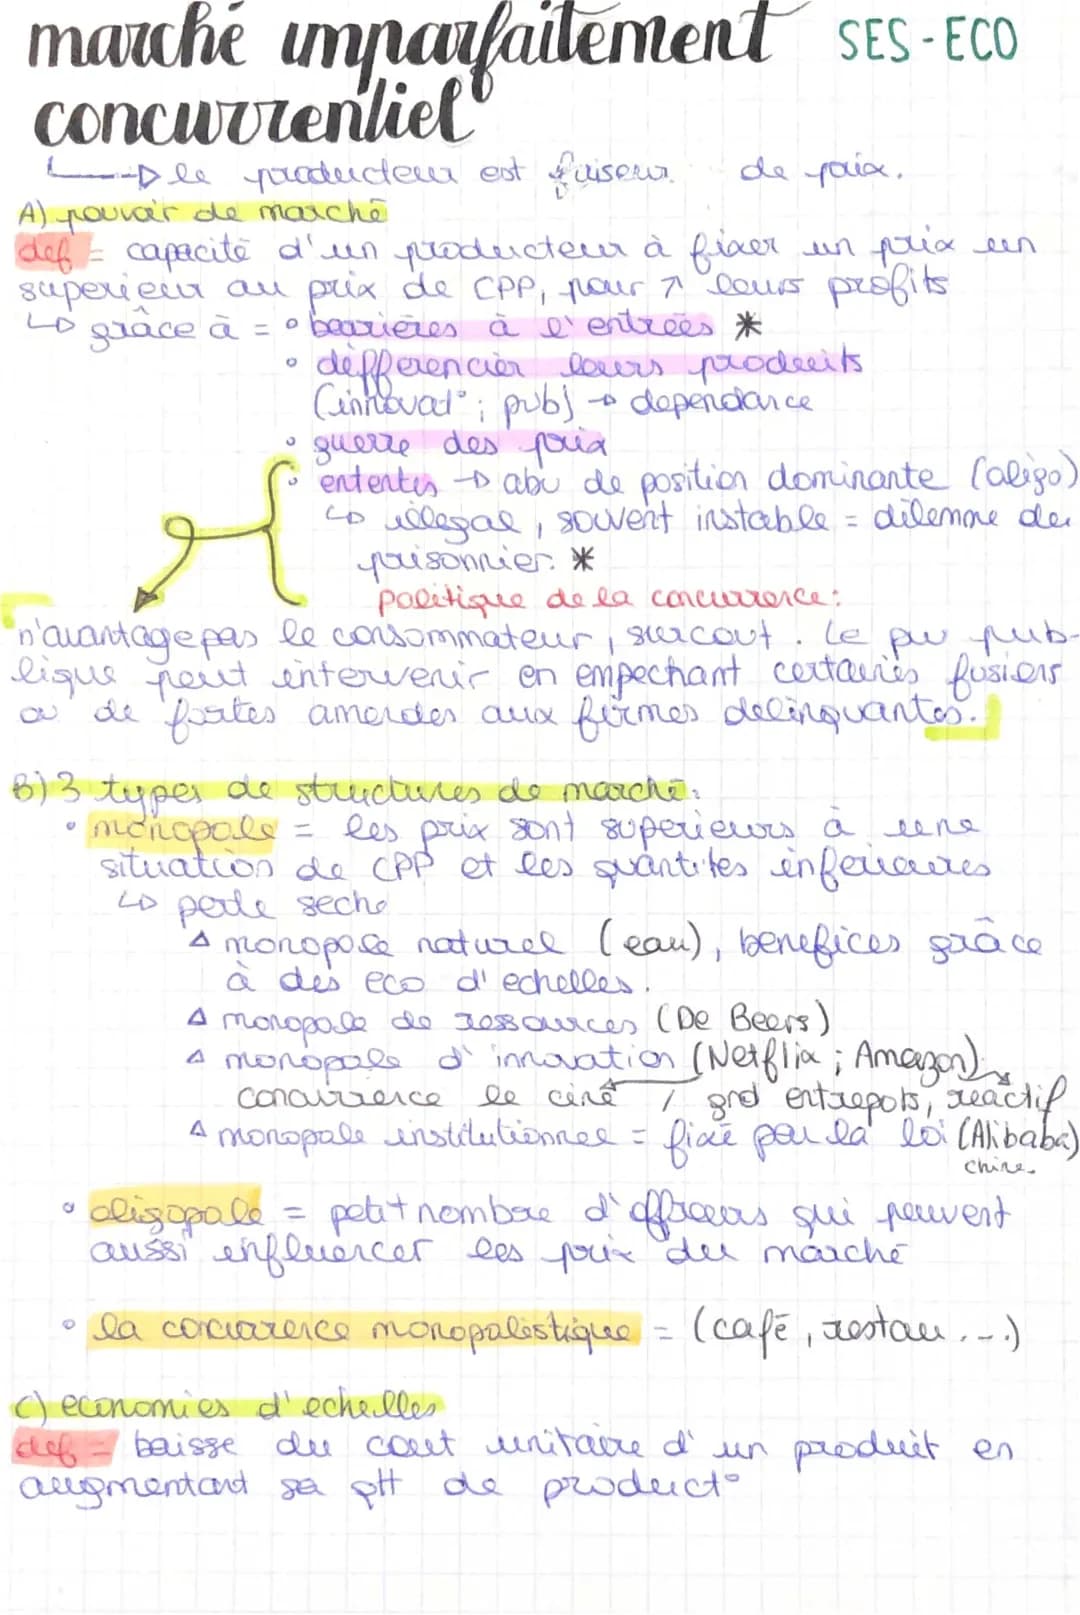 marché imparfaitement SES-ECO
concurrentiel
↳ le producteur est faiseur de prix.
A) pouvoir de marché
def = capacité d'un producteur à fixer un prix un
superieur au prix de CPP, pour ↗ leurs profits
↳ grâce à = ° barrières à l'entrées *
° différencier leurs produits
(innovat°; pub) → dependance
° guerre des prix
° ententes → abu de position dominante (oligo)
↳ illegal, souvent instable = dilemne du
prisonnier. *
politique de la concurrence:
n'avantage pas le consommateur, surcout. Le pv pub-
lique peut intervenir en empechant certaines fusions
ou de fortes amendes aux firmes delinquantes.
B) 3 types de structures de marché:
• monopole = les prix sont superieurs à une
situation de CPP et les quantites inferieures
↳ perte seche
Δ monopole naturel (eau), benefices grâce
à des eco d'echelles.
Δ monopole de ressources (De Beers)
Δ monopole d'innovation (Netflix ; Amazon)
concurrence le ciné / grd entrepots, réactif
Δ monopole institutionnel = fixé par la loi (Alibaba)
chine.
° oligopole = petit nombre d'offreurs qui peuvent
aussi influencer les prix du marché
° la concurrence monopolistique = (café, restau...)
C) economies d'echelles
def = baisse du cout unitaire d'un produit en
augmentant sa qtt de product°